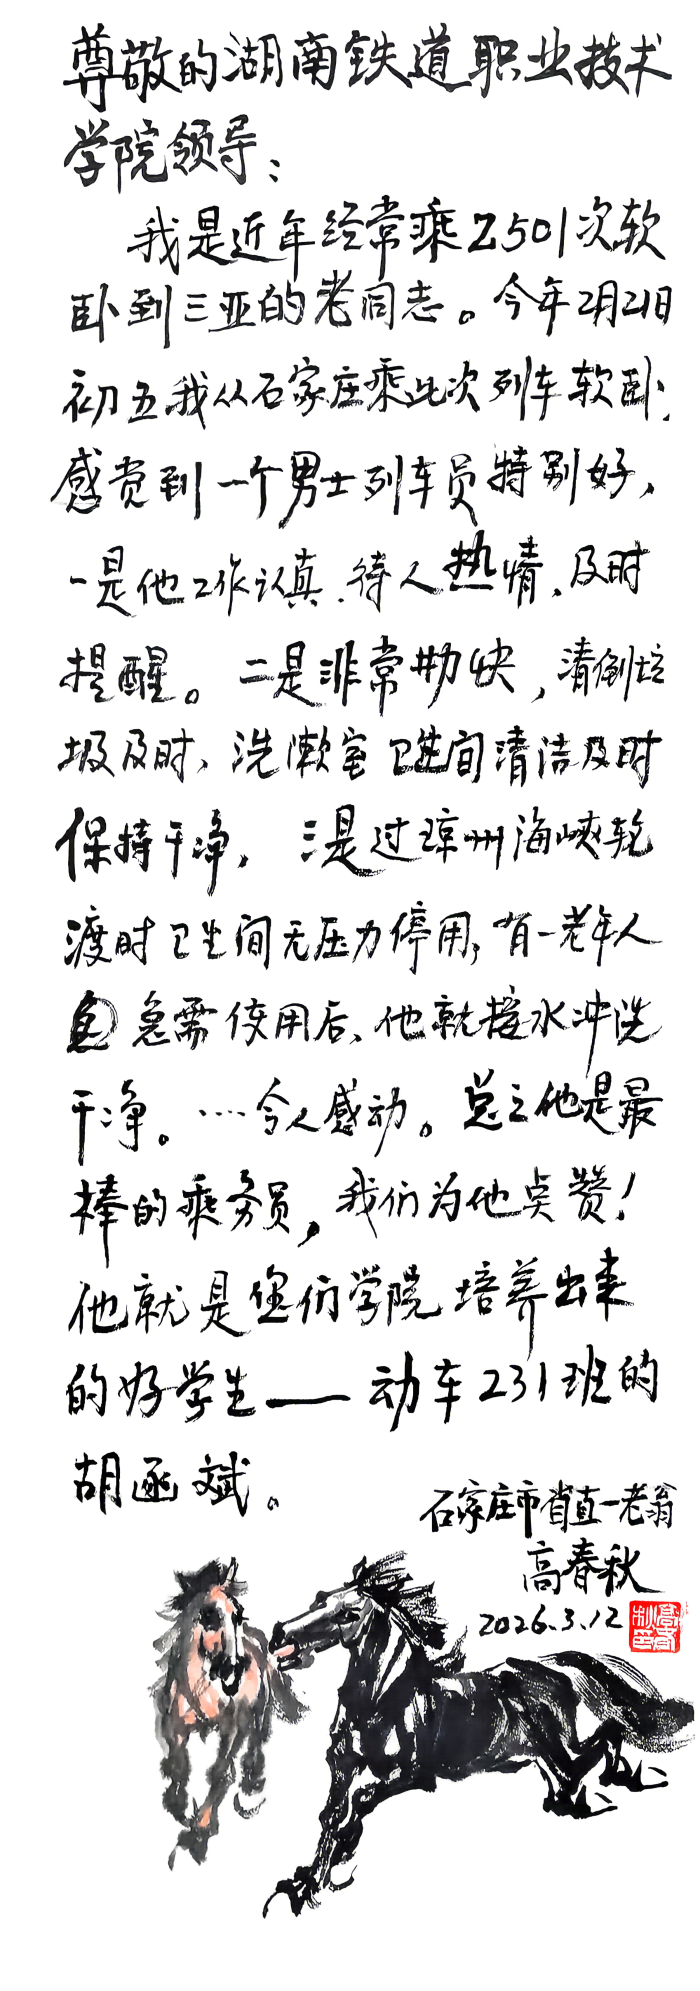 尊敬的湖南铁道职业技术
学院领导：
我是近年经常乘Z501次软
卧到三亚的老同志。今年2月21日
初五我从石家庄乘此次列车软卧，
感觉到一个男士列车员特别好，
一是他工作认真、待人热情、及时
提醒。二是非常勤快，清倒垃
圾及时、洗漱室卫生间清洁及时
保持干净，三是过琼州海峡轮
渡时卫生间无压力停用，有一老年人
急需使用后、他就接水冲洗
干净。····令人感动。总之他是最
棒的乘务员，我们为他点赞！
他就是您们学院培养出来
的好学生——动车231班的
胡函斌。
石家庄市省直一老翁
高春秋
2026.3.12